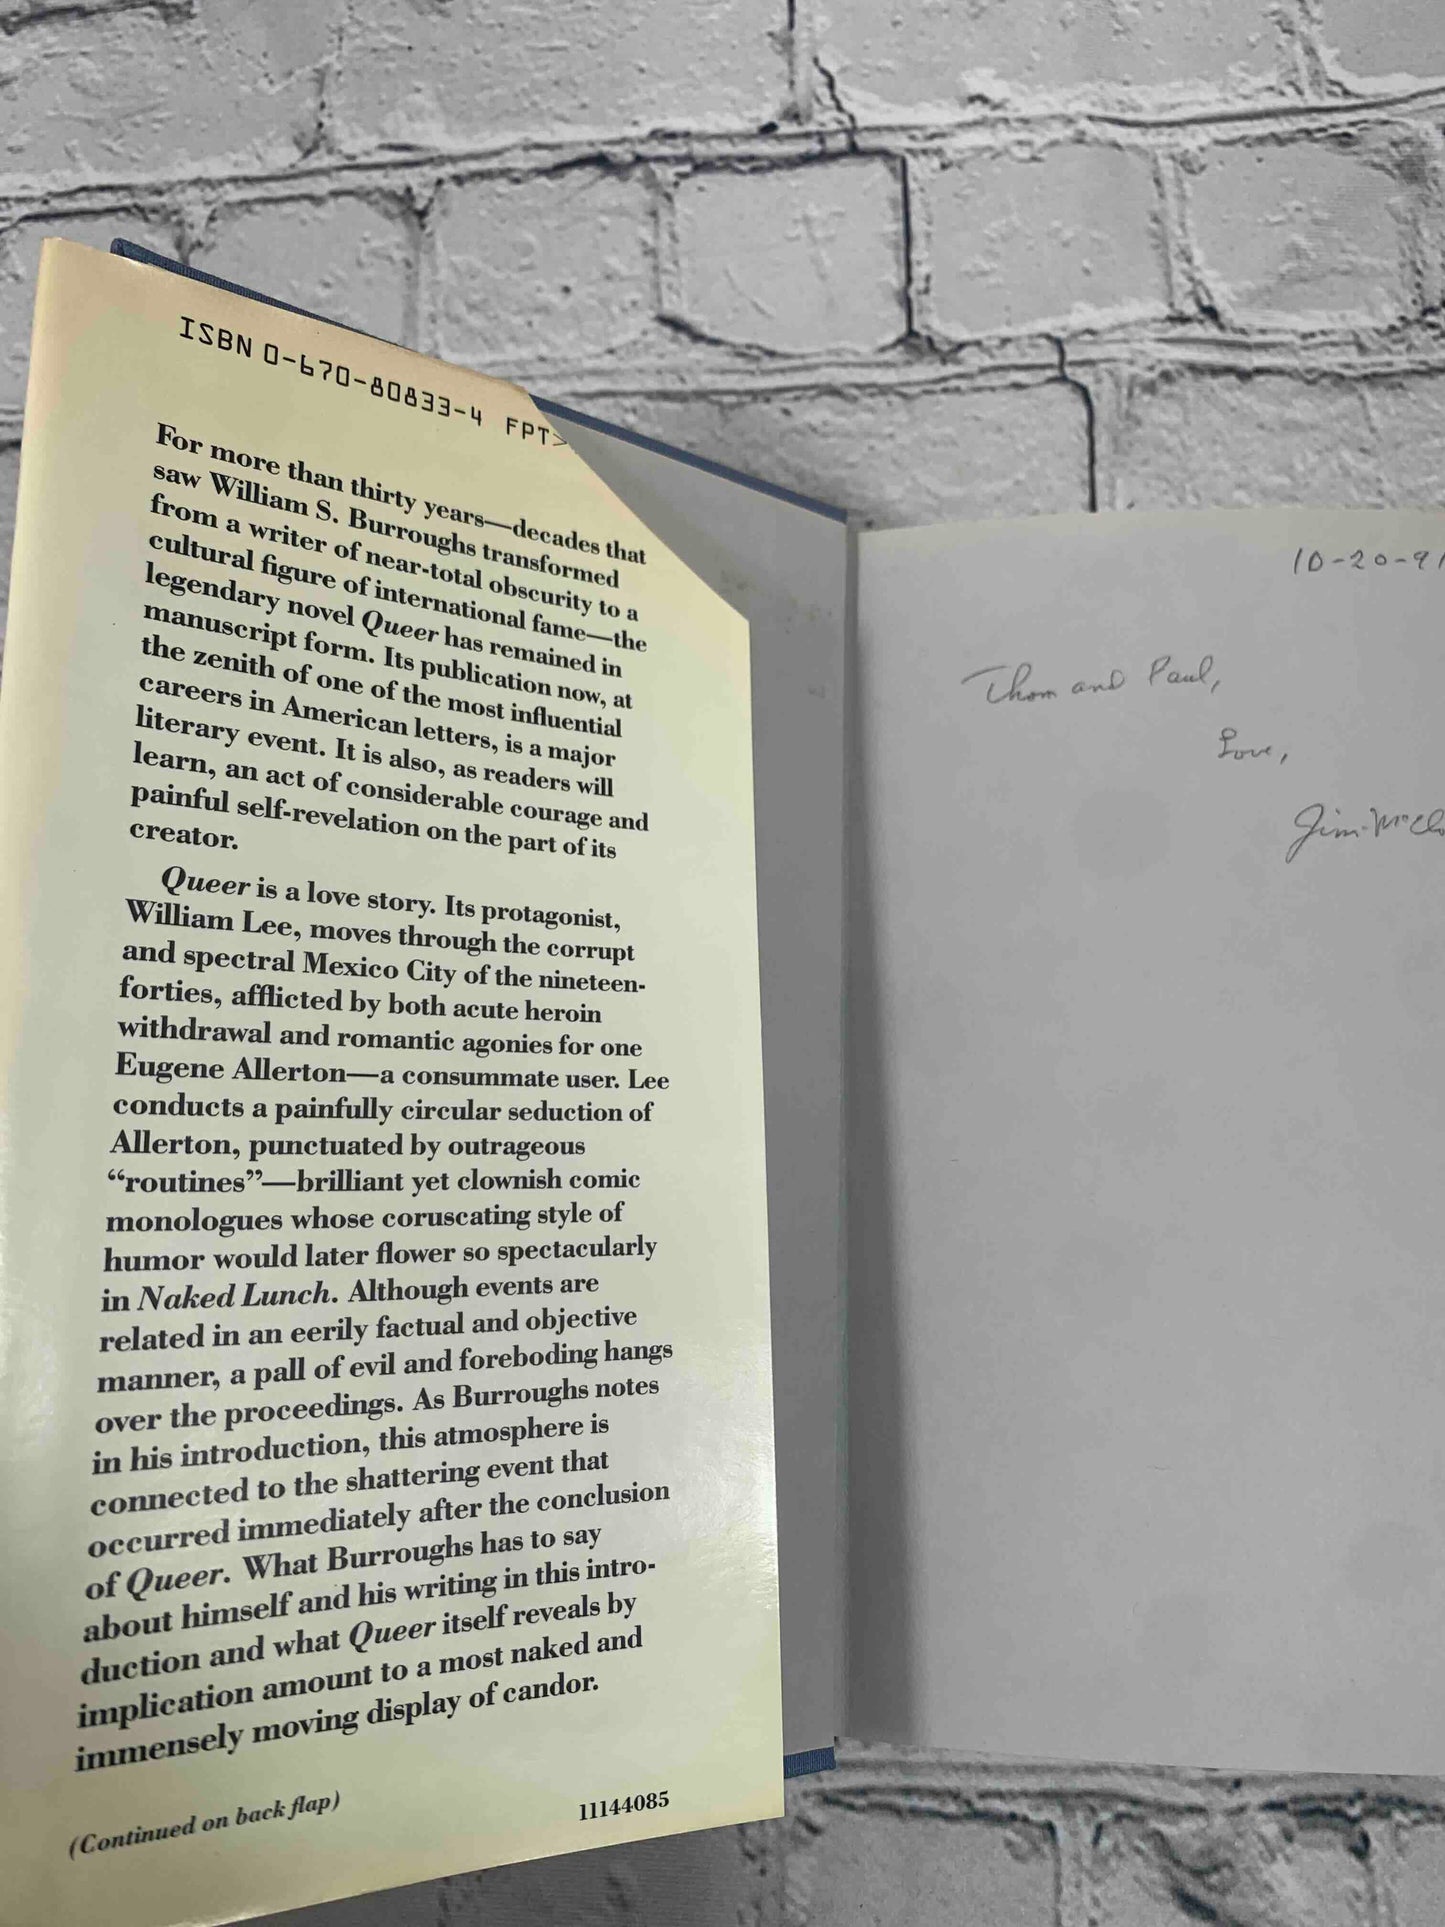 ISBN 0-670-80833-4 FPT>
For more than thirty years—decades that
saw William S. Burroughs transformed
from a writer of near-total obscurity to a
cultural figure of international fame—the
legendary novel Queer has remained in
manuscript form. Its publication now, at
the zenith of one of the most influential
careers in American letters, is a major
literary event. It is also, as readers will
learn, an act of considerable courage and
painful self-revelation on the part of its
creator.
Queer is a love story. Its protagonist,
William Lee, moves through the corrupt
and spectral Mexico City of the nineteen-
forties, afflicted by both acute heroin
withdrawal and romantic agonies for one
Eugene Allerton—a consummate user. Lee
conducts a painfully circular seduction of
Allerton, punctuated by outrageous
“routines”—brilliant yet clownish comic
monologues whose coruscating style of
humor would later flower so spectacularly
in Naked Lunch. Although events are
related in an eerily factual and objective
manner, a pall of evil and foreboding hangs
over the proceedings. As Burroughs notes
in his introduction, this atmosphere is
connected to the shattering event that
occurred immediately after the conclusion
of Queer. What Burroughs has to say
about himself and his writing in this intro-
duction and what Queer itself reveals by
implication amount to a most naked and
immensely moving display of candor.
(Continued on back flap)
11144085
10-20-91
Thom and Paul,
Love,
Jim